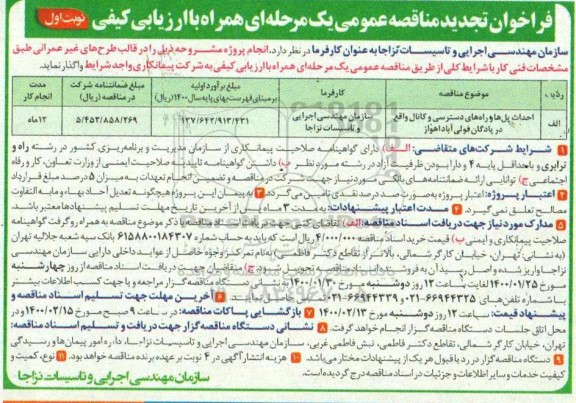 فراخوان تجدید مناقصه عمومی یک مرحله‌ای همراه با ارزیابی کیفی
نوبت اول
سازمان مهندسی اجرایی و تاسیسات نزاجا به عنوان کارفرما در نظر دارد، انجام پروژه مشروحه ذیل را در قالب طرح‌های غیر عمرانی طبق
مشخصات فنی کار با شرایط کلی از طریق مناقصه عمومی یک مرحله‌ای همراه با ارزیابی کیفی به شرکت پیمانکاری واجد شرایط واگذار نماید.
ردیف موضوع مناقصه کارفرما مبلغ برآورد اولیه بر مبنای فهرست بهای پایه سال ۱۴۰۰ (ریال) مبلغ ضمانتنامه شرکت در مناقصه (ریال) مدت انجام کار
الف احداث پل‌ها و راه‌های دسترسی و کانال واقع در پادگان فولی آباد اهواز سازمان مهندسی اجرایی و تاسیسات نزاجا ۱۲۷/۶۴۲/۹۱۳/۴۳۱ ۵/۴۵۲/۸۵۸/۲۶۹ ۱۲ ماه
۱ شرایط شرکت‌های متقاضی: الف) دارای گواهینامه صلاحیت پیمانکاری از سازمان مدیریت و برنامه‌ریزی کشور در رشته راه و
ترابری و با حداقل پایه ۴ و دارا بودن ظرفیت آزاد در رشته مورد نظر ب) داشتن گواهینامه تایید صلاحیت ایمنی از وزارت تعاون، کار و رفاه
اجتماعی ج) توانایی ارائه ضمانتنامه‌های بانکی مورد نیاز جهت شرکت در مناقصه و تضمین انجام تعهدات به میزان ۵ درصد مبلغ قرارداد
۲ اعتبار پروژه: اعتبار پروژه به صورت صد درصد نقدی تامین می‌گردد. ۳ به پیمان این پروژه هیچگونه تعدیل آحاد بهاء و مابه التفاوت
مصالح تعلق نمی‌گیرد. ۴ مدت اعتبار پیشنهادات: به مدت ۳ ماه پس از آخرین تاریخ مهلت تسلیم پیشنهادها معتبر باشد.
۵ مدارک مورد نیاز جهت دریافت اسناد مناقصه: الف) تقاضای کتبی جهت دریافت اسناد مناقصه با ذکر موضوع مناقصه به همراه رو گرفت گواهینامه
صلاحیت پیمانکاری و ایمنی ب) قیمت خرید اسناد مناقصه ۴/۰۰۰/۰۰۰ ریال است که باید به حساب شماره ۶۱۵۸۸۰۰۱۸۴۳۰۷ بانک سپه شعبه جلالیه تهران
(به نشانی: تهران، خیابان کارگر شمالی، بالاتر از تقاطع دکتر فاطمی) به نام تمرکز وجوه حاصل از عواید داخلی دارایی سازمان مهندسی
نزاجا واریز شده و اصل رسید آن به فروشنده اسناد مناقصه تحویل شود ج) متقاضیان جهت دریافت اسناد مناقصه از روز چهارشنبه
مورخ ۱۴۰۰/۰۱/۲۵ لغایت ساعت ۱۲ روز دوشنبه مورخ ۱۴۰۰/۰۱/۳۰ به نشانی دستگاه مناقصه گزار مراجعه و یا جهت کسب اطلاعات بیشتر
با شماره تلفن‌های ۶۶۹۴۴۳۲۵-۰۲۱ و ۶۶۹۴۴۳۳۹-۰۲۱ تماس حاصل نمایند. ۶ آخرین مهلت جهت تسلیم اسناد مناقصه و
پیشنهاد قیمت: ساعت ۱۲ روز دوشنبه مورخ ۱۴۰۰/۰۲/۱۳ ۷ بازگشایی پاکات مناقصه: در ساعت ۹ صبح مورخ ۱۴۰۰/۰۲/۱۵ در
محل اتاق جلسات دستگاه مناقصه گزار انجام خواهد گرفت. ۸ نشانی دستگاه مناقصه گزار جهت دریافت و تسلیم اسناد مناقصه:
تهران، خیابان کارگر شمالی، تقاطع دکتر فاطمی، نبش فاطمی غربی، سازمان مهندسی اجرایی و تاسیسات نزاجا، اداره امور پیمان‌ها و رسیدگی
۹ دستگاه مناقصه گزار در رد یا قبول هر یک از پیشنهادات مختار می‌باشد. ۱۰ هزینه انتشار آگهی در ۴ نوبت بر عهده برنده مناقصه خواهد بود. ۱۱ نوع، کمیت و
کیفیت خدمات و سایر اطلاعات و جزئیات در اسناد مناقصه درج گردیده است.
سازمان مهندسی اجرایی و تاسیسات نزاجا